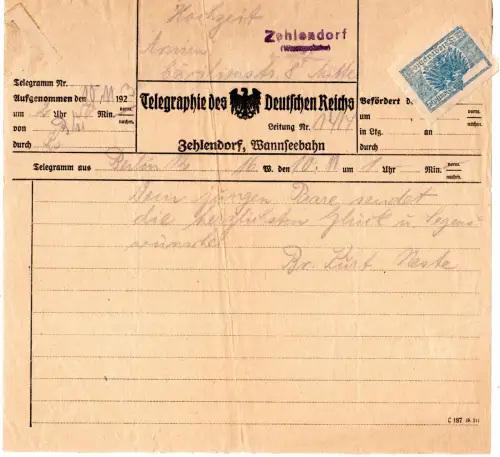 Hochzeit
Zehlendorf
(Wannseebahn)
Telegramm Nr.
Aufgenommen den 10. 11. 192
um Uhr Min. vorm. nachm.
von Bln
durch
Telegraphie des Deutschen Reichs
Leitung Nr.
Zehlendorf, Wannseebahn
Befördert den
um
in Ltg. an
durch
Telegramm aus Berlin 16 W. den 10. 11 um 1 Uhr Min. vorm. nachm.
Dem jungen Paare sendet
die herzlichsten Glück u Segens
wünsche
Br. Kurt Neste
C 187